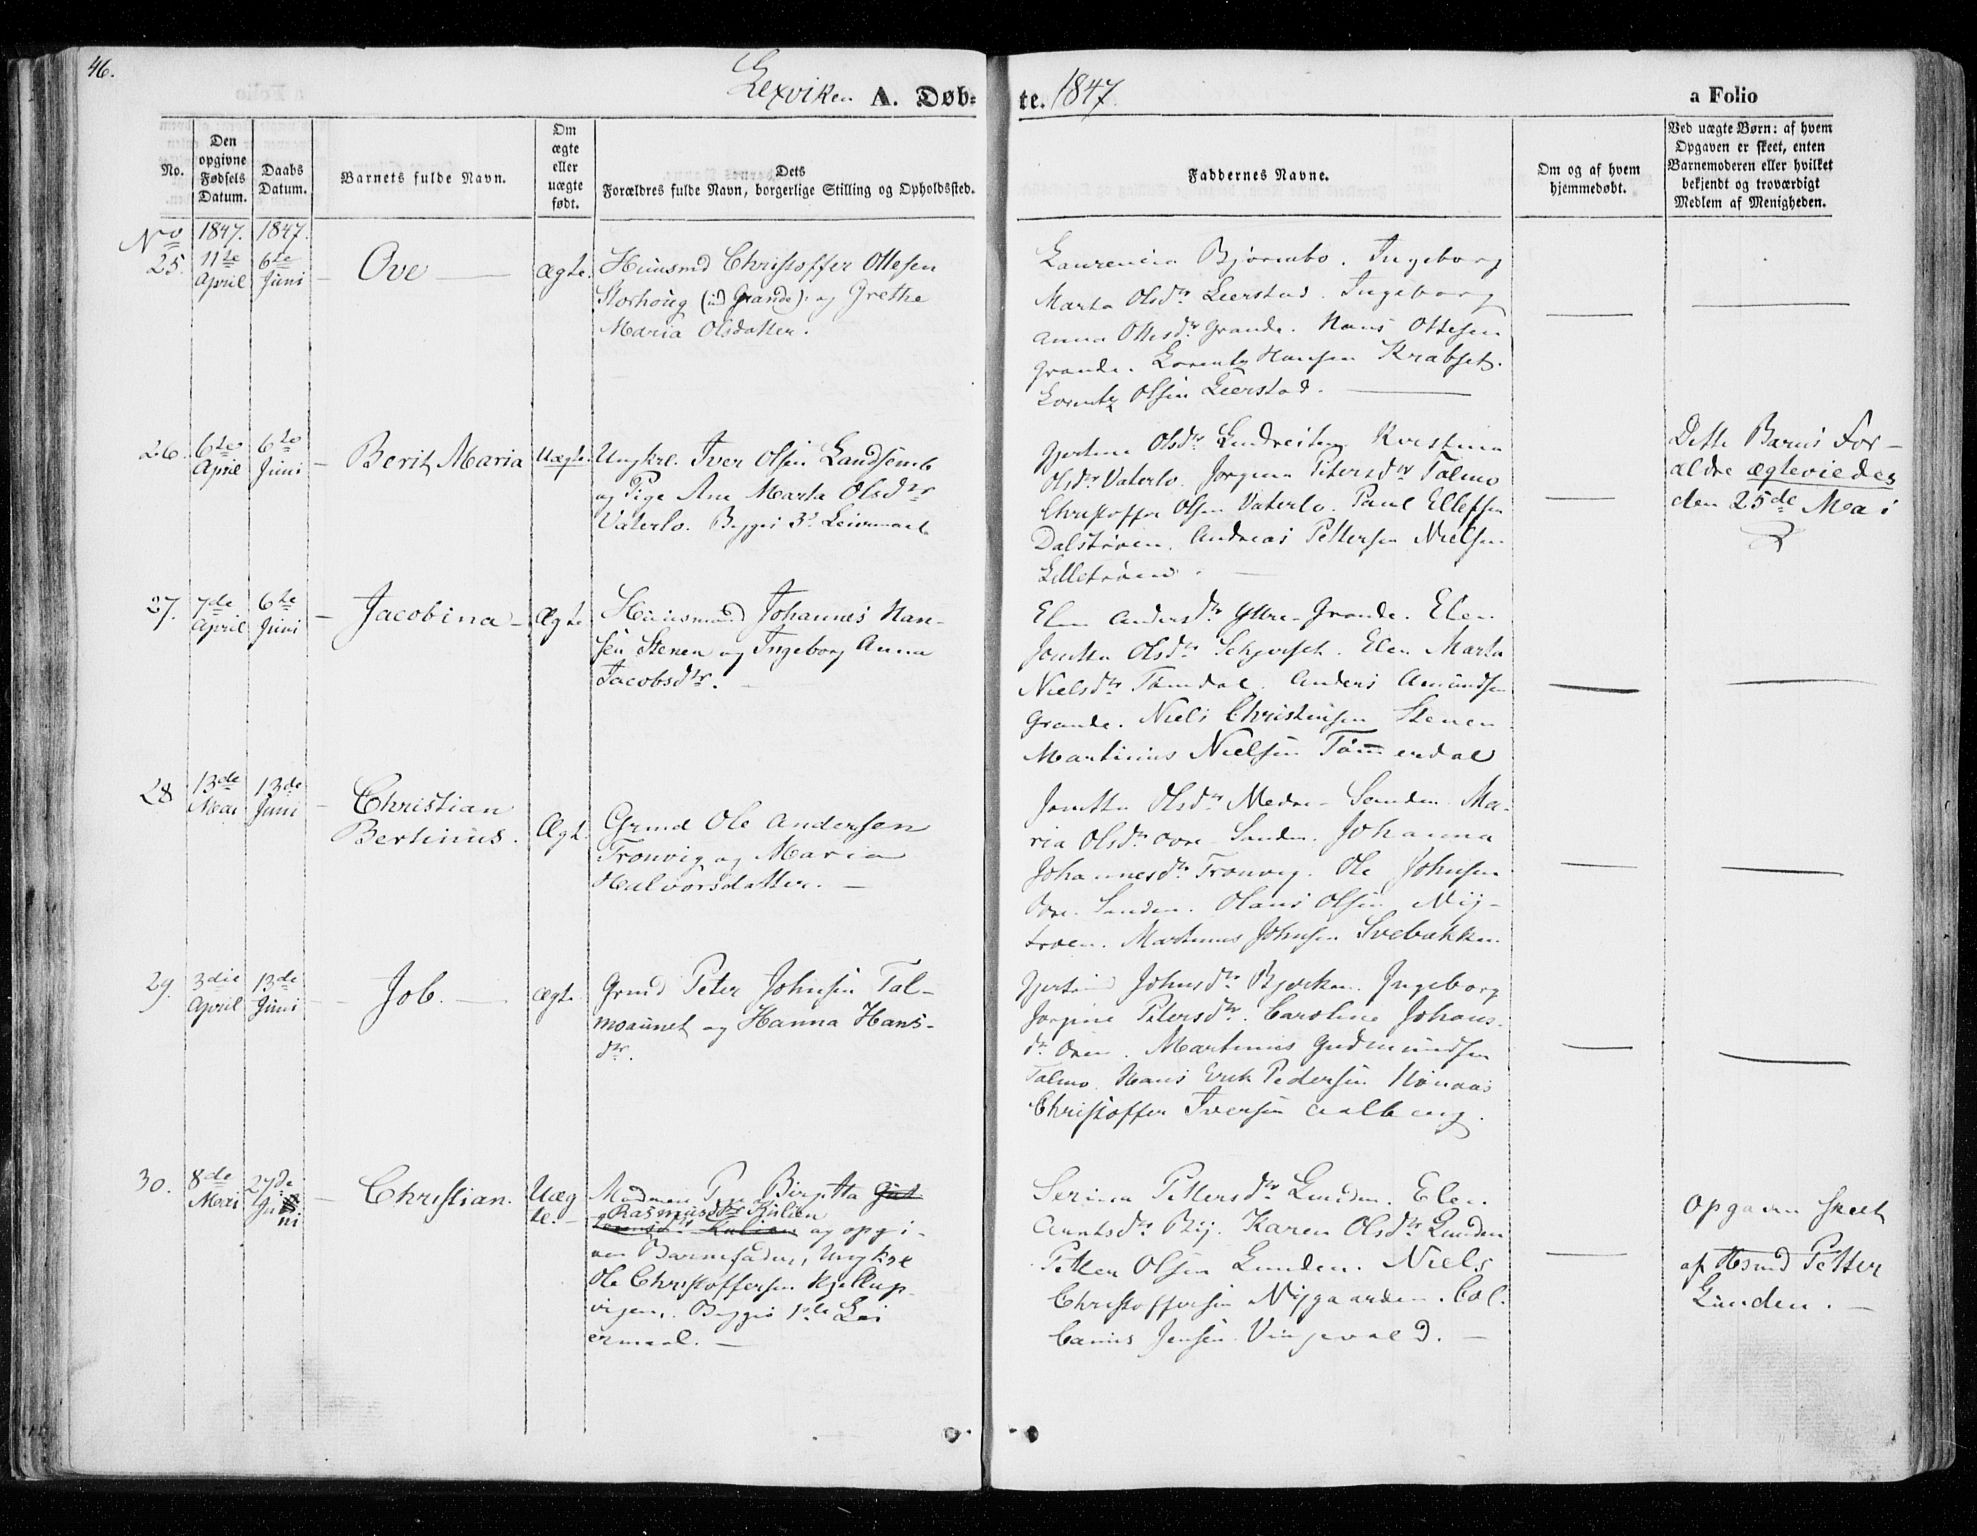 46.
Lexviken A. Døb-
te. 1847.
a Folio
No.
Den opgivne Fødsels Datum.
Daabs Datum.
Barnets fulde Navn.
Om ægte eller uægte født.
Dets
Forældres fulde Navn, borgerlige Stilling og Opholdssted.
Faddernes Navne.
Om og af hvem hjemmedøbt.
Ved uægte Børn: af hvem
Opgaven er skeet, enten
Barnemoderen eller hvilket
bekjendt og troværdigt
Medlem af Menigheden.
No 1847. 1847.
25. 11te April 6te Juni – Ove – Ægte.
Huusmd Christoffer Ottesen
Storhoug (in Grande) og Grethe
Maria Olsdatter.
Laurencia Bjørnebo. Ingeborg
Marta Olsdtr Leerstad. Ingeborg
Anna Ottesdtr Grande. Hans Ottesen
Grande. Lorentz Hansen Krabset.
Lorentz Olsen Leerstad.
26. 6te April 6te Juni – Berit Maria Uægte.
Ungkrl. Iver Olsen Landsemb
og Pige Ane Marta Olsdtr
Vaterlo. Begges 3d Leiermaal
Gjertine Olsdtr
Olsdtr Vaterlo. Jørgina Petersdtr Talmo
Christoffer Olsen Vaterlo. Paul Ellefsen
Dalstrøen. Andreas Pettersen Nielsen
Lilletrøen.
Dette Barns For-
ældre ægteviedes
den 25de Mai
27. 7de April 6te Juni – Jacobina – Ægte
Huusmand Johannes Han-
sen Stenen og Ingeborg Anna
Jacobsdtr.
Elen Andersdtr Yttre-Grande. Elen
Jonetta Olsdtr Schjerset. Elen Marta
Nielsdtr Tømdal. Anders Amundsen
Grande. Niels Christensen Stenen
Martinus Nielsen Tømmerdal
28 13de Mai 13de Juni – Christian
Bertinus. Ægte.
Grmd Ole Andersen
Tronvig og Maria
Halvorsdatter. –
Jonetta Olsdtr Medre-Sanden. Ma-
ria Olsdtr Øvre-Sanden. Johanna
Johannesdtr Tronvig. Ole Johnsen
Øvre-Sanden. Olaus Olsen Nij-
trøen. Martinus Johnsen Svebakken.
29. 3die April 13de Juni – Job. – Ægte
Grmd Peter Johnsen Tal-
moaunet og Hanna Hans-
dtr.
Gjertrud Johnsdtr Bjerken. Ingeborg
Jørgine Petersdtr. Caroline Johans-
dtr Øren. Martinus Gudmundsen
Talmo. Hans Erik Pedersen Hønaas
Christoffer Iversen Aalberg.
30. 8de Mai 27de Juni – Christian. Uæg
te. –
Birgitta
Rasmusdtr Kulien
og opgi-
ven Barnefader, Ungkrl
Ole Christoffersen Kjellup-
vigen. Begges 1ste Lei
ermaal. –
Serina Pettersdtr Lunden. Elen
Arntsdtr Bij. Karen Olsdtr Lunden
Petter Olsen Lunden. Niels
Christoffersen Nijgaarden. Col.
Canus Jensen Vingevold. –
Opgaven skeet
af Hsmd Petter
Lunden. –